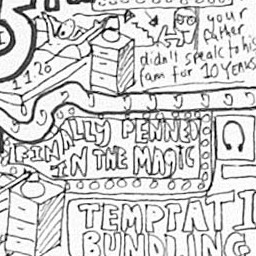 your
father
didn't speak to his
fam for 10 YEARS
1.1.20
FINALLY PENNED
IN THE MAGIC
TEMPTATI
BUNDLING